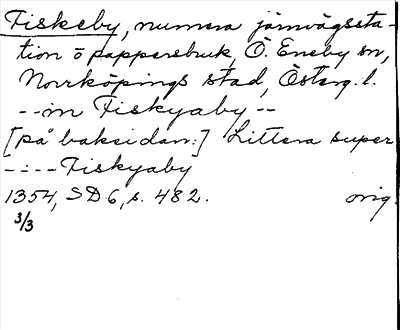 Fiskeby, numera järnvägssta-
tion o pappersbruk, Ö. Eneby sn,
Norrköpings stad, Österg. l.
--in Fiskyaby--
[på baksidan:] Littera super
----Fiskyaby
1354, SD 6, s. 482. orig.
3/3